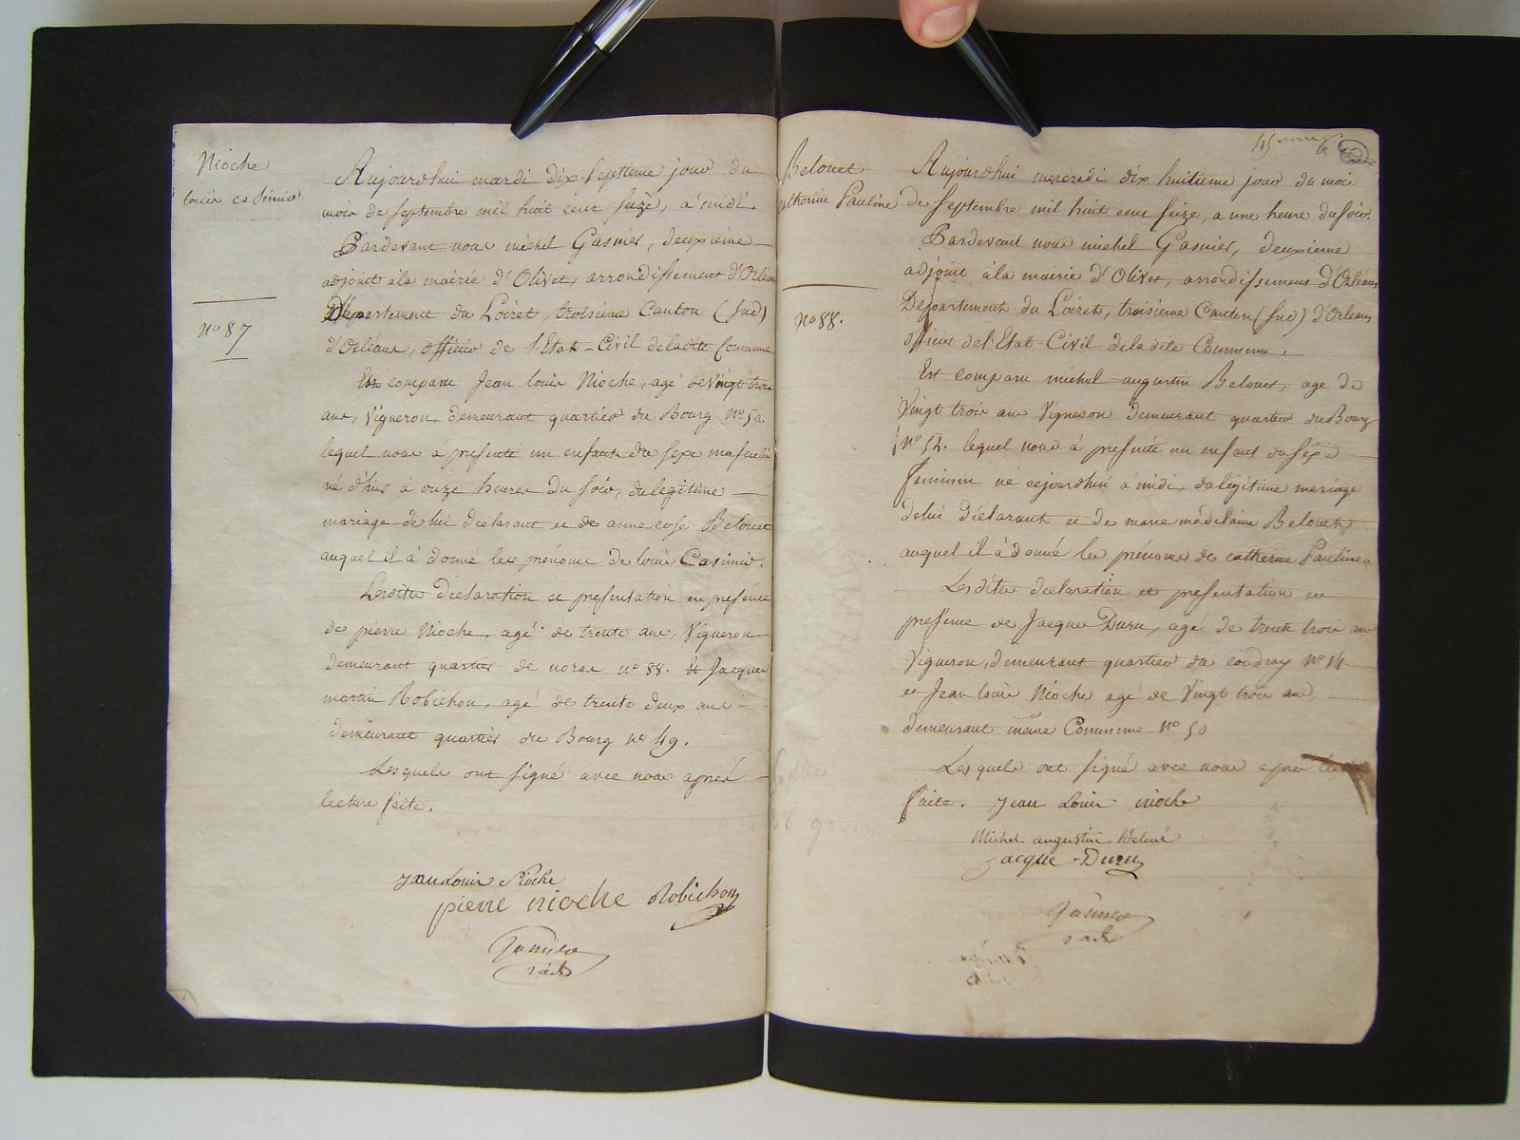 Nioche
Louis Casimir
N° 87
Aujourdhui mardi dix Septieme jour du
mois de Septembre mil huit cent seize, à midi.
Pardevant nous michel Gasnier, deuxieme
adjoint à la mairie d'Olivet, arrondissement d'Orleans
Département du Loiret, troisieme Canton (Sud)
d'Orleans, officier de l'Etat-Civil deladite Commune
Est comparu Jean Louis Nioche, agé de vingt trois
ans, Vigneron demeurant quartier du Bourg N° 50.
lequel nous à presenté un enfant du sexe masculin
né d'hier à onze heures du soir, du legitime
mariage de lui déclarant et de anne rose Belouet
auquel il à donné les prénoms de Louis Casimir.
Lesdites déclaration et presentation en presence
de pierre Nioche, agé de trente ans, Vigneron
demeurant quartier de n° 88. et Jacques
marin Robichon, agé de trente deux ans
demeurant quartier du Bourg n° 49.
Lesquels ont signé avec nous après
lecture faite.
Jean Louis Nioche
pierre nioche Robichon
Gasnier
adt
Belouet
Catherine Pauline
N° 88.
Aujourdhui mercredi dix huitieme jour du mois
de Septembre mil huit cent seize, a une heure du soir.
Pardevant nous michel Gasnier, deuxieme
adjoint à la mairie d'Olivet, arrondissement d'Orleans
Département du Loiret, troisieme Canton (Sud) d'Orleans
officier de l'Etat-Civil deladite Commune.
Est comparu michel augustin Belouet, age de
Vingt trois ans Vigneron demeurant quartier du Bourg
N° 52. lequel nous à presenté un enfant du sexe
feminin né cejourdhui à midi, du légitime mariage
delui déclarant et de marie madelaine Belouet
auquel il à donné les prénoms de catherine Pauline
Lesdites déclaration et presentation en
presence de Jacque Duru, agé de trente trois ans
Vigneron, demeurant quartier du coudray N° 14
et Jean Louis Nioche agé de Vingt trois ans
demeurant même Commune N° 50
Lesquels ont signé avec nous apres lecture
faite. Jean Louis nioche
Michel augustin Beloué
Jacque Duru
Gasnier
adt